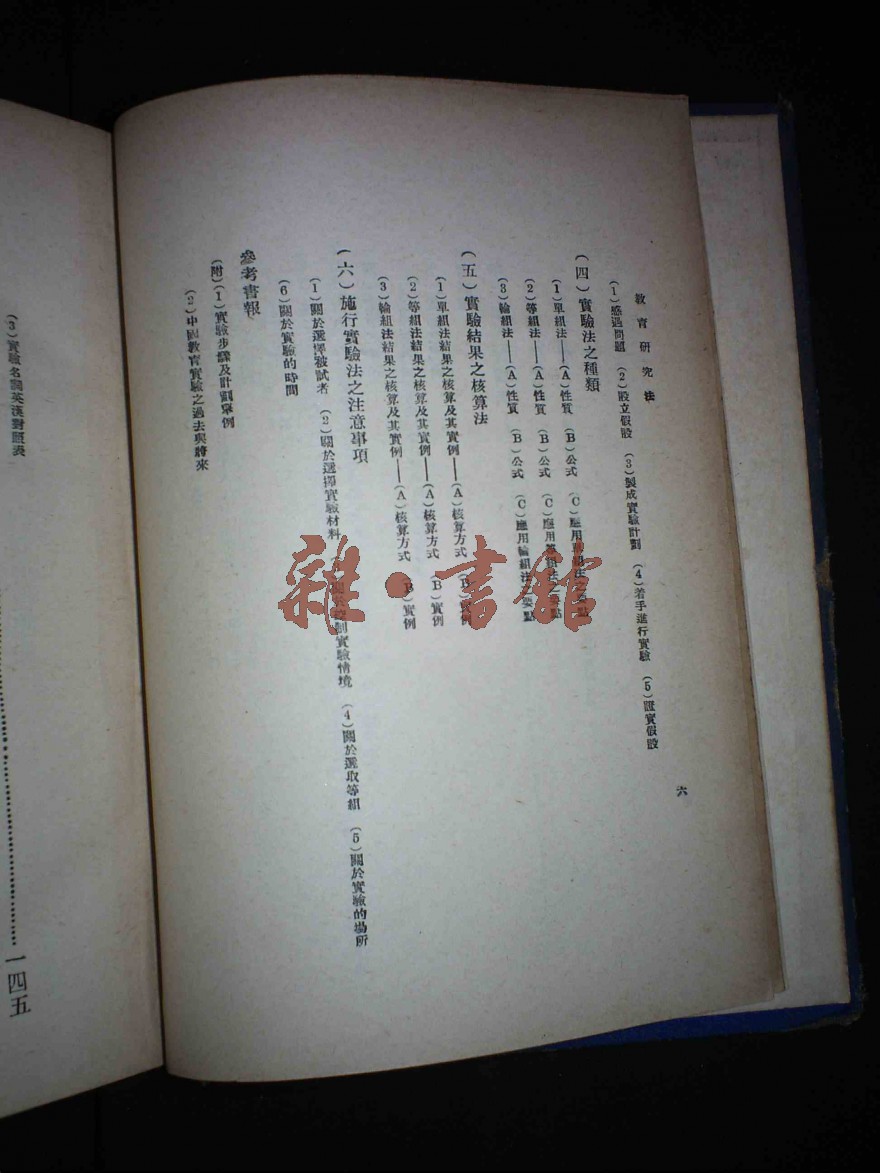 教育研究法
六
(1)感遇問題 (2)設立假設 (3)製成實驗計劃 (4)着手進行實驗 (5)證實假設
(四)實驗法之種類
(1)單組法——(A)性質 (B)公式 (C)應用單組法之要點
(2)等組法——(A)性質 (B)公式 (C)應用等組法之要點
(3)輪組法——(A)性質 (B)公式 (C)應用輪組法之要點
(五)實驗結果之核算法
(1)單組法結果之核算及其實例——(A)核算方式 (B)實例
(2)等組法結果之核算及其實例——(A)核算方式 (B)實例
(3)輪組法結果之核算及其實例——(A)核算方式 (B)實例
(六)施行實驗法之注意事項
(1)關於選擇被試者 (2)關於選擇實驗材料 控制實驗情境 (4)關於選取等組 (5)關於實驗的場所
(6)關於實驗的時間
參考書報
(附)(1)實驗步驟及計劃舉例
(2)中國教育實驗之過去與將來
(3)實驗名詞英漢對照表……一四五
雜·書館